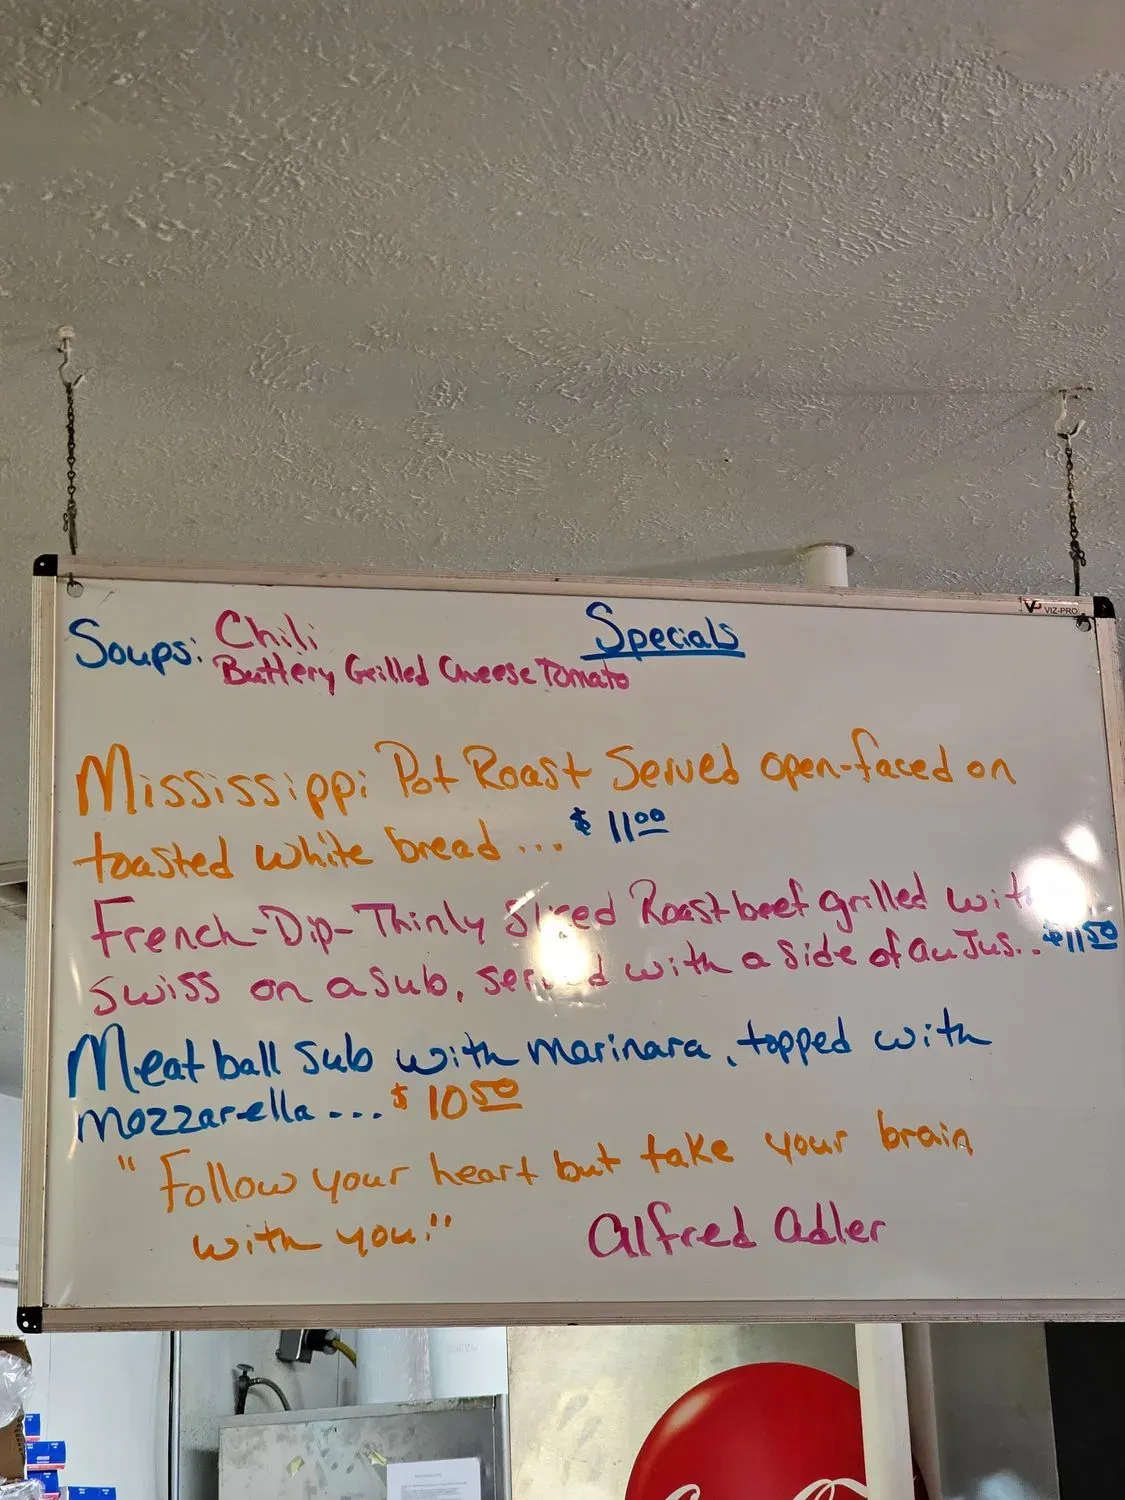 VP VIZ-PRO
Soups: Chili
Buttery Grilled Cheese Tomato
Specials
Mississippi Pot Roast Served open-faced on
toasted white bread ... $11.00
French-Dip-Thinly Sliced Roast beef grilled with
swiss on a sub, served with a side of au Jus.. $11.50
Meatball sub with marinara, topped with
mozzarella... $10.50
"Follow your heart but take your brain
with you."
Alfred Adler